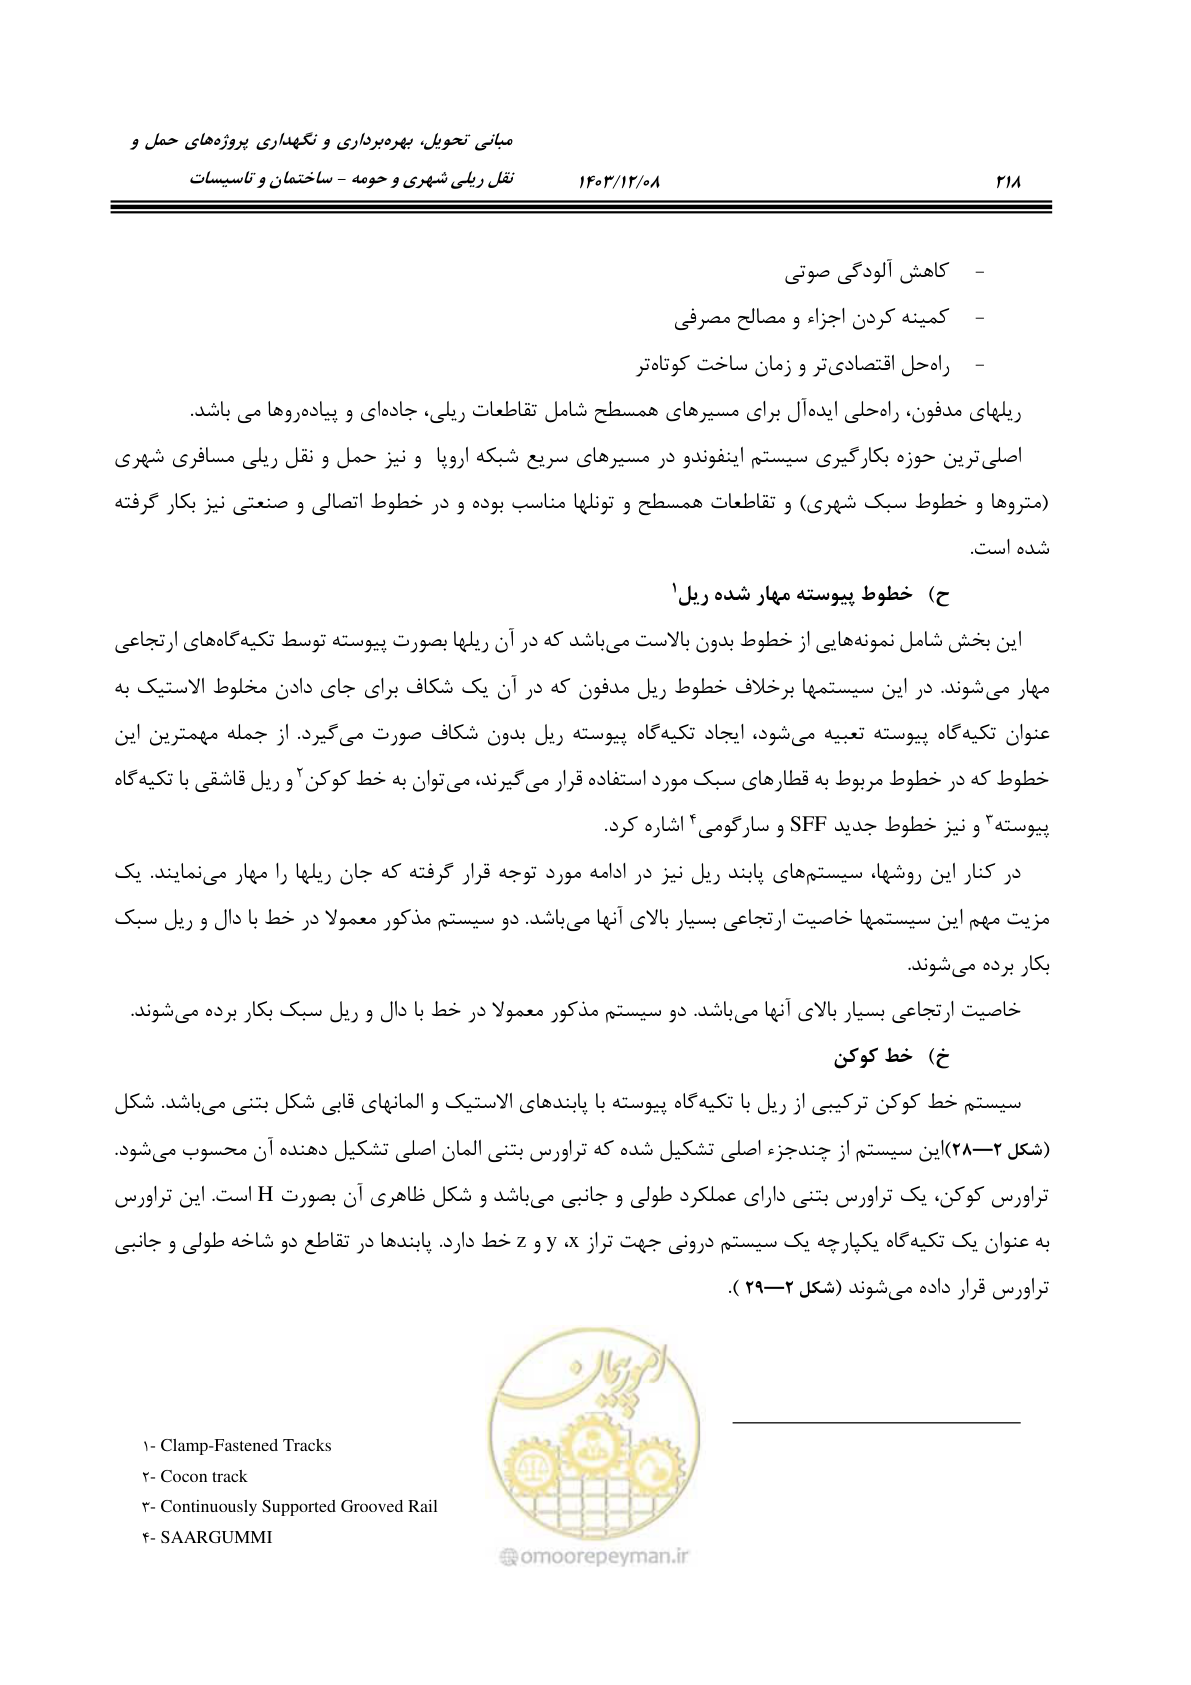 مبانی تحویل، بهره‌برداری و نگهداری پروژه‌های حمل و
۲۱۸ ۱۴۰۳/۱۲/۰۸ نقل ریلی شهری و حومه – ساختمان و تاسیسات
- کاهش آلودگی صوتی
- کمینه کردن اجزاء و مصالح مصرفی
- راه‌حل اقتصادی‌تر و زمان ساخت کوتاه‌تر
ریلهای مدفون، راه‌حلی ایده‌آل برای مسیرهای همسطح شامل تقاطعات ریلی، جاده‌ای و پیاده‌روها می باشد.
اصلی‌ترین حوزه بکارگیری سیستم اینفوندو در مسیرهای سریع شبکه اروپا و نیز حمل و نقل ریلی مسافری شهری
(متروها و خطوط سبک شهری) و تقاطعات همسطح و تونلها مناسب بوده و در خطوط اتصالی و صنعتی نیز بکار گرفته
شده است.
ح) خطوط پیوسته مهار شده ریل۱
این بخش شامل نمونه‌هایی از خطوط بدون بالاست می‌باشد که در آن ریلها بصورت پیوسته توسط تکیه‌گاه‌های ارتجاعی
مهار می‌شوند. در این سیستمها برخلاف خطوط ریل مدفون که در آن یک شکاف برای جای دادن مخلوط الاستیک به
عنوان تکیه‌گاه پیوسته تعبیه می‌شود، ایجاد تکیه‌گاه پیوسته ریل بدون شکاف صورت می‌گیرد. از جمله مهمترین این
خطوط که در خطوط مربوط به قطارهای سبک مورد استفاده قرار می‌گیرند، می‌توان به خط کوکن۲ و ریل قاشقی با تکیه‌گاه
پیوسته۳ و نیز خطوط جدید SFF و سارگومی۴ اشاره کرد.
در کنار این روشها، سیستم‌های پابند ریل نیز در ادامه مورد توجه قرار گرفته که جان ریلها را مهار می‌نمایند. یک
مزیت مهم این سیستمها خاصیت ارتجاعی بسیار بالای آنها می‌باشد. دو سیستم مذکور معمولا در خط با دال و ریل سبک
بکار برده می‌شوند.
خاصیت ارتجاعی بسیار بالای آنها می‌باشد. دو سیستم مذکور معمولا در خط با دال و ریل سبک بکار برده می‌شوند.
خ) خط کوکن
سیستم خط کوکن ترکیبی از ریل با تکیه‌گاه پیوسته با پابندهای الاستیک و المانهای قابی شکل بتنی می‌باشد. شکل
(شکل ۲—۲۸)این سیستم از چندجزء اصلی تشکیل شده که تراورس بتنی المان اصلی تشکیل دهنده آن محسوب می‌شود.
تراورس کوکن، یک تراورس بتنی دارای عملکرد طولی و جانبی می‌باشد و شکل ظاهری آن بصورت H است. این تراورس
به عنوان یک تکیه‌گاه یکپارچه یک سیستم درونی جهت تراز x، y و z خط دارد. پابندها در تقاطع دو شاخه طولی و جانبی
تراورس قرار داده می‌شوند (شکل ۲—۲۹ ).
امور پیمان
۱- Clamp-Fastened Tracks
۲- Cocon track
۳- Continuously Supported Grooved Rail
۴- SAARGUMMI
@omoorepeyman.ir